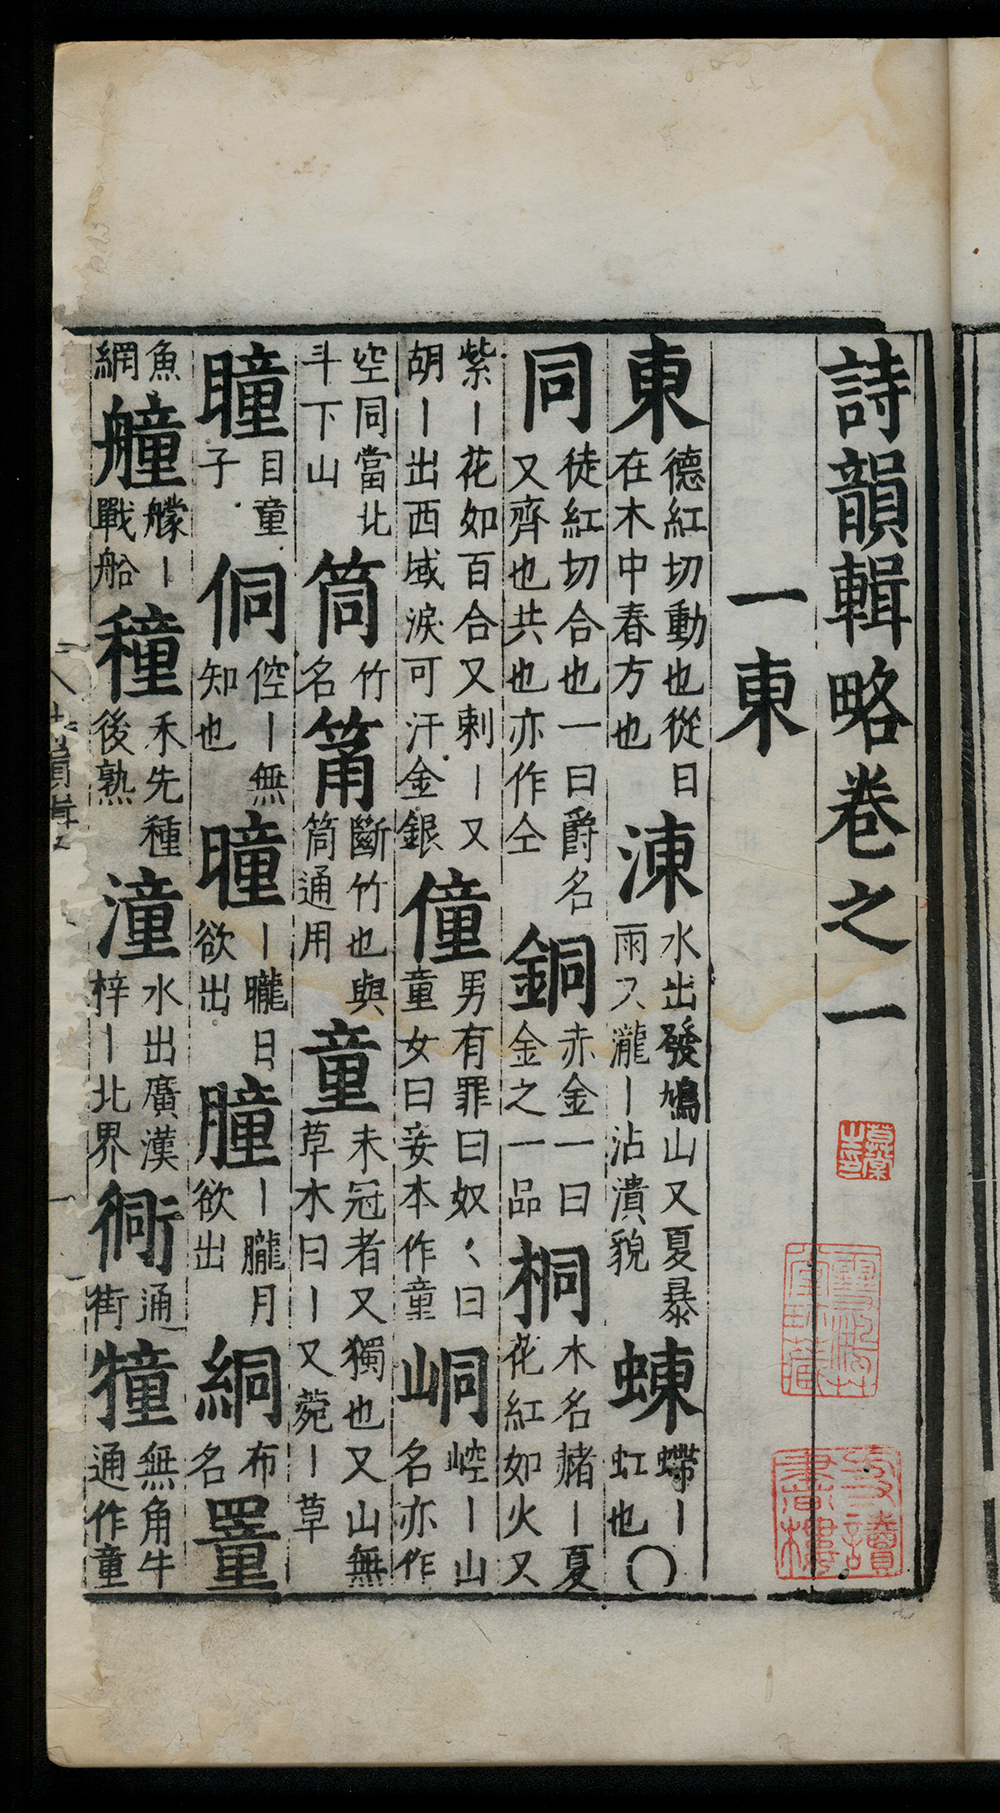 詩韻輯略卷之一
一東
東德紅切動也從日在木中春方也涷水出發鳩山又夏暴雨又瀧丨沾漬貌蝀螮丨虹也〇
同徒紅切合也一曰爵名又齊也共也亦作仝銅赤金一曰金之一品桐木名赭丨夏花紅如火又
紫丨花如百合又刺丨又胡丨出西域淚可汗金銀僮男有罪曰奴〻曰童女曰妾本作童峒崆丨山名亦作
空同當北斗下山筒竹名筩斷竹也與筒通用童未冠者又獨也又山無草木曰丨又菀丨草
瞳目童子侗倥丨無知也曈丨曨日欲出朣丨朧月欲出絧布名罿
魚網艟艨丨戰船穜禾先種後熟潼水出廣漢梓丨北界衕通街犝無角牛通作童
慕棠之印
讀書樓